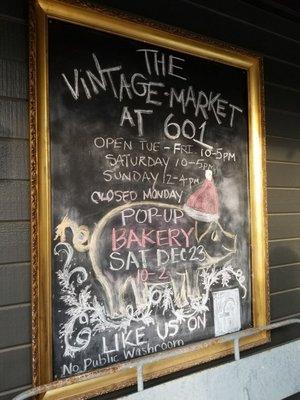 THE
VINTAGE-MARKET
AT 601
OPEN TUE - FRI 10-5PM
SATURDAY 10-5PM
SUNDAY 12-4PM
CLOSED MONDAY
POP-UP
BAKERY
SAT DEC 23
10-2
LIKE US ON
No Public Washroom